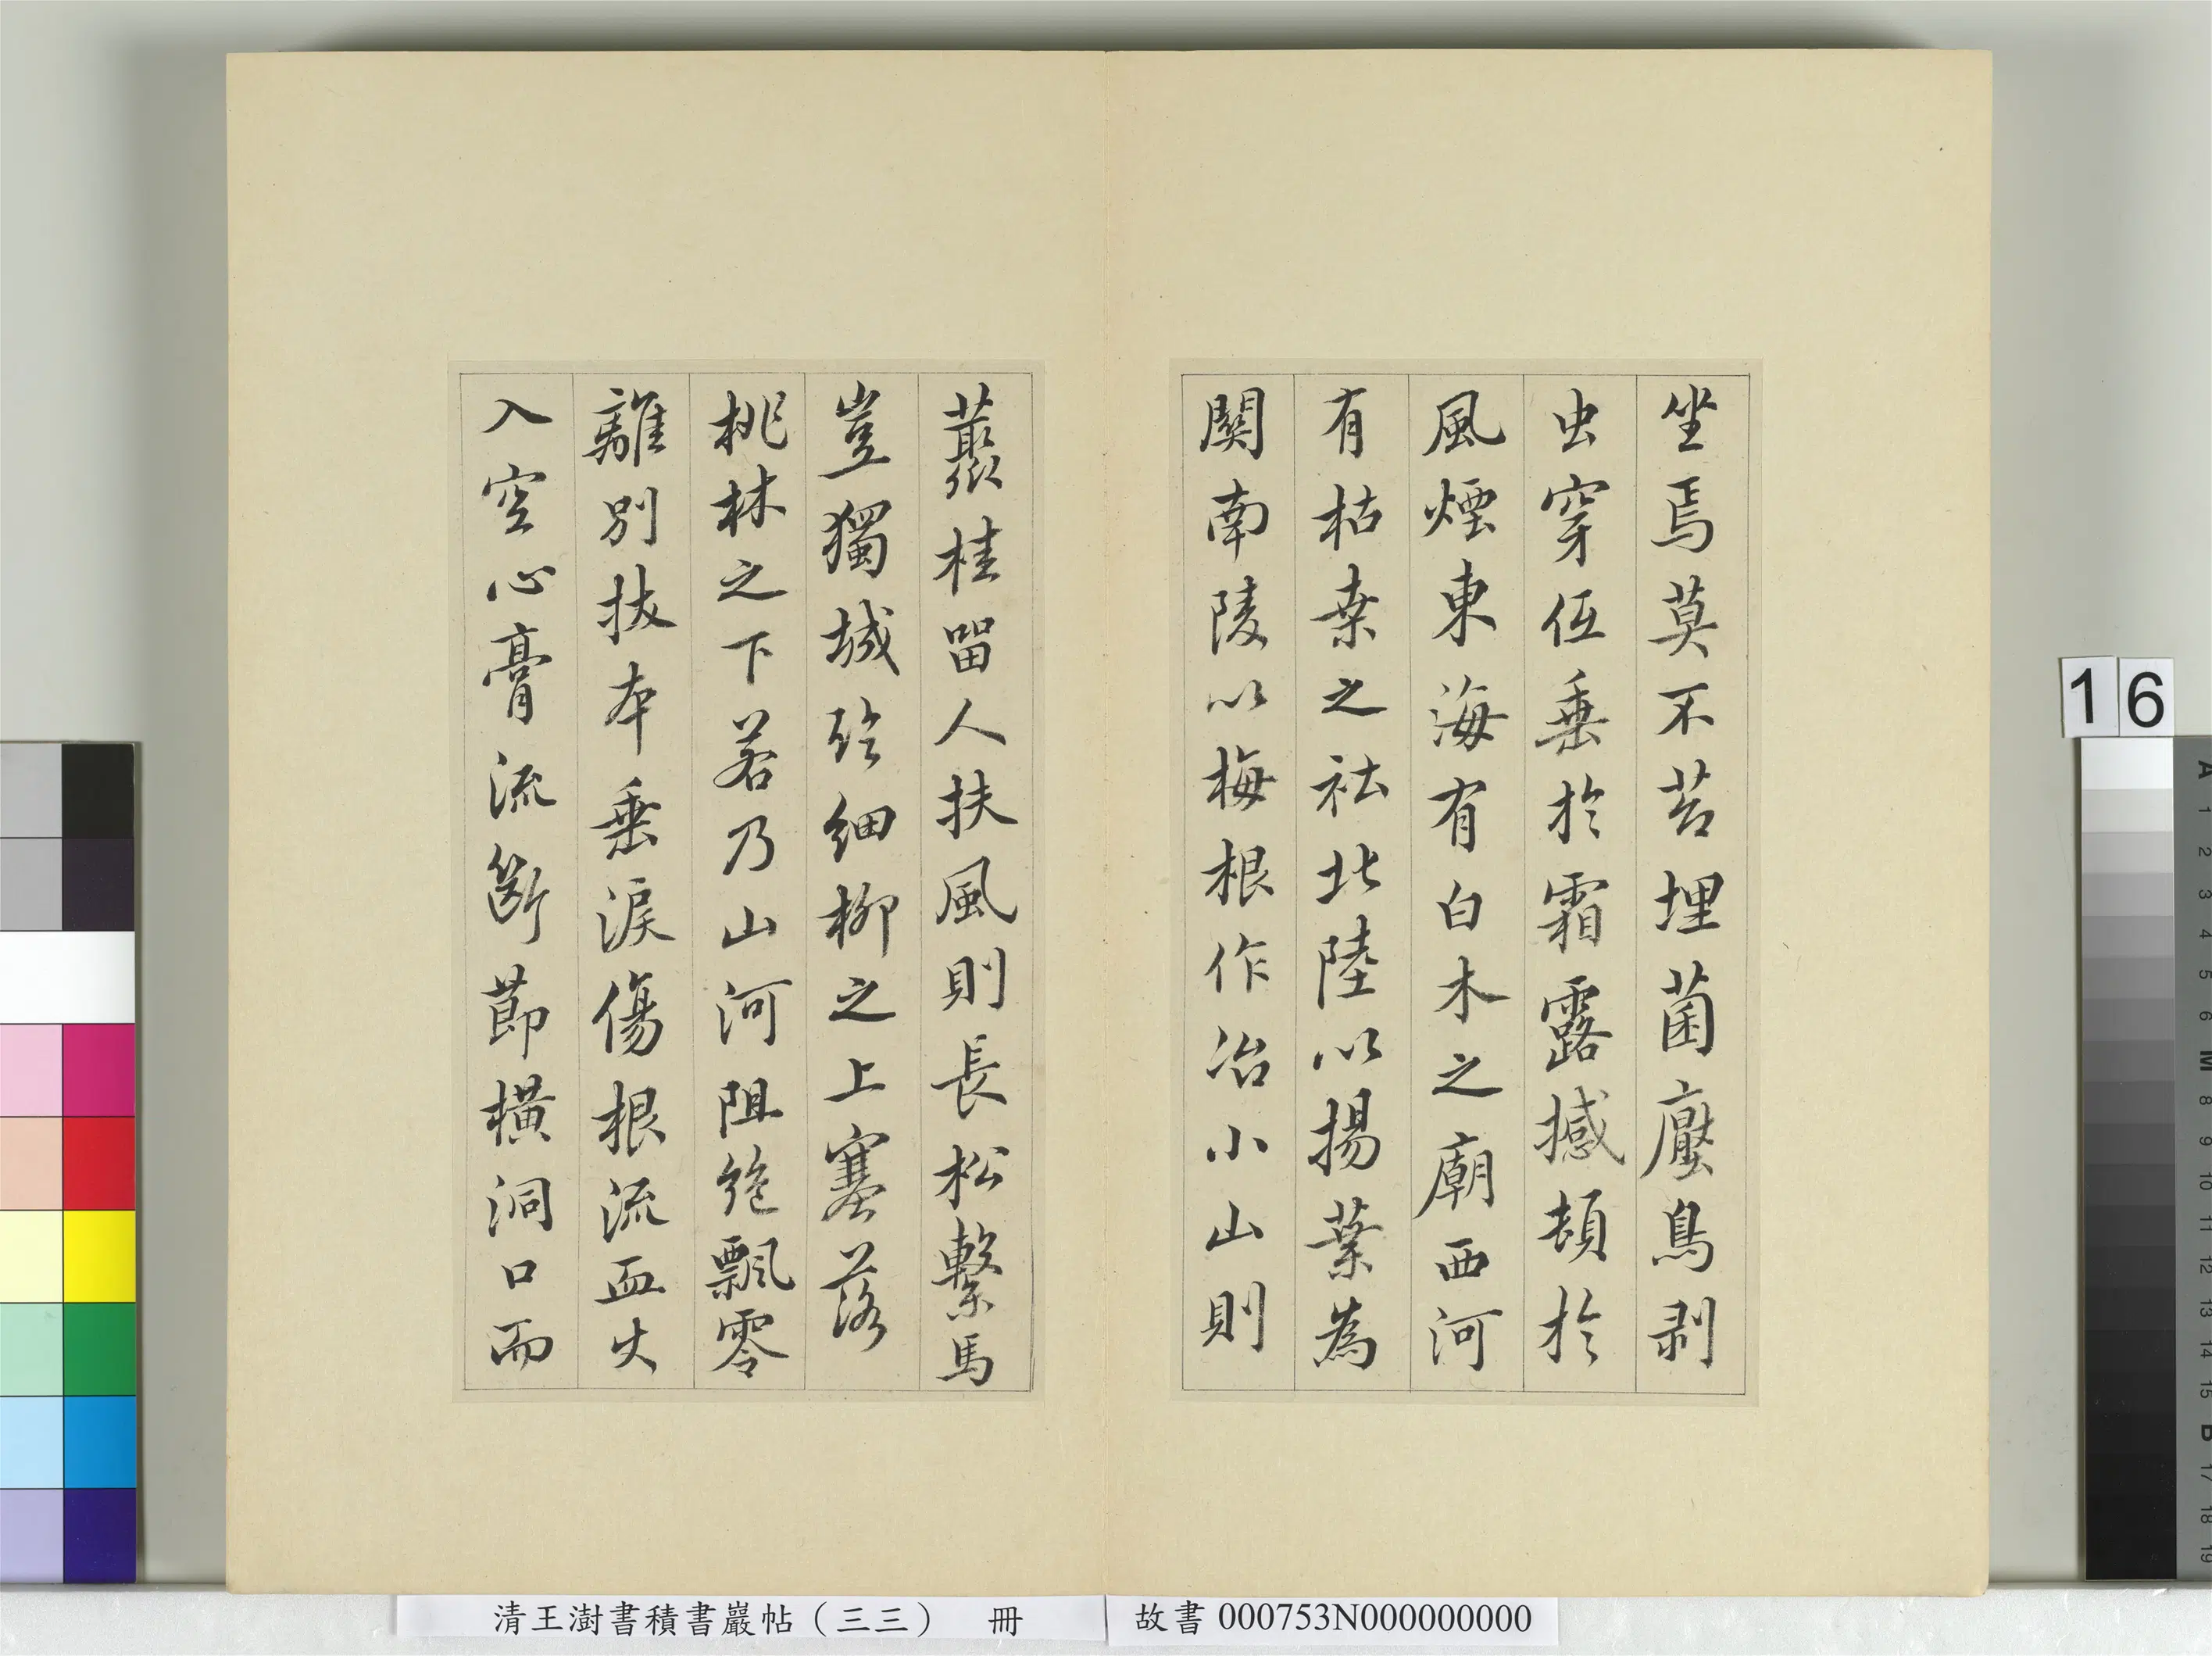 坐焉莫不苔埋菌壓鳥剥
虫穿伍垂於霜露撼頓於
風煙東海有白木之廟西河
有枯桒之社北陸以揚葉為
關南陵以梅根作冶小山則
叢桂留人扶風則長松繫馬
豈獨城臨細柳之上塞落
桃林之下若乃山河阻絶飄零
離別拔本垂淚傷根流血火
入空心膏流斷節橫洞口而
清王澍書積書巖帖（三三） 冊
故書 000753N000000000
16
A 1 2 3 4 5 6 M 8 9 10 11 12 13 14 15 B 17 18 19